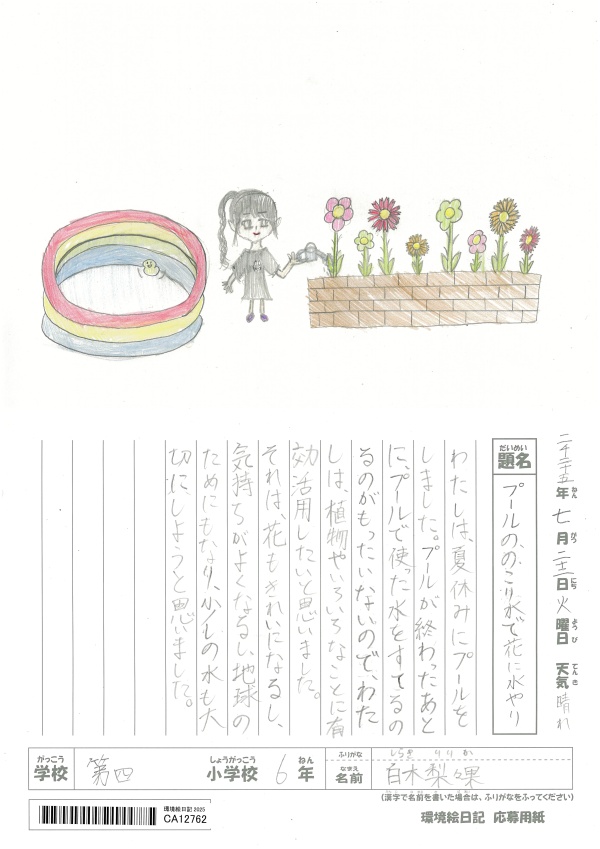 二千二十五年 七月 二十二日 火曜日 天気 晴れ
ねん がつ にち ようび てんき
だいめい
題名 プールののこり水で花に水やり
わたしは、夏休みにプールを
しました。プールが終わったあと
に、プールで使った水をすてるの
るのがもったいないので、わた
しは、植物やいろいろなことに有
効活用したいと思いました。
それは、花もきれいになるし、
気持ちがよくなるし、地球の
ためにもなり、少しの水も大
切にしようと思いました。
がっこう しょうがっこう ねん ふりがな しらき りりか
学校 第四 小学校 6年 なまえ 名前 白木梨々果
(漢字で名前を書いた場合は、ふりがなをふってください)
環境絵日記 2025
CA12762
環境絵日記 応募用紙